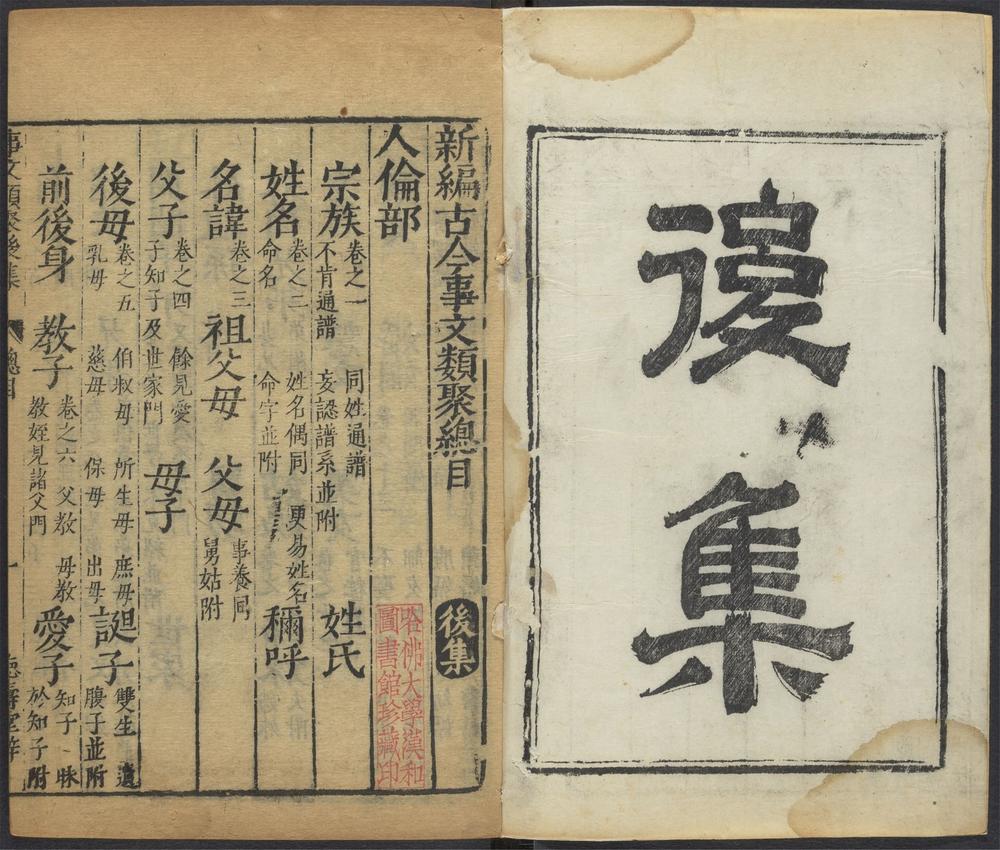 後集
新編古今事文類聚總目 後集
人倫部
哈佛大學漢和
圖書館珍藏印
宗族 卷之一 同姓通譜 不肯通譜 妄認譜系並附 姓氏
姓名 卷之二 姓名偶同 更易姓名 命名 命字並附 稱呼
名諱 卷之三 祖父母 父母 事養同 舅姑附
父子 卷之四 餘見愛子知子及世家門 母子
後母 卷之五 伯叔母 所生母 庶母 乳母 慈母 保母 出母 誕子 雙生 遺腹子並附
前後身 教子 卷之六 父教 母教 教姪見諸父門 愛子 知子 昧於知子附
事文類聚後集 總目 一 德壽堂梓